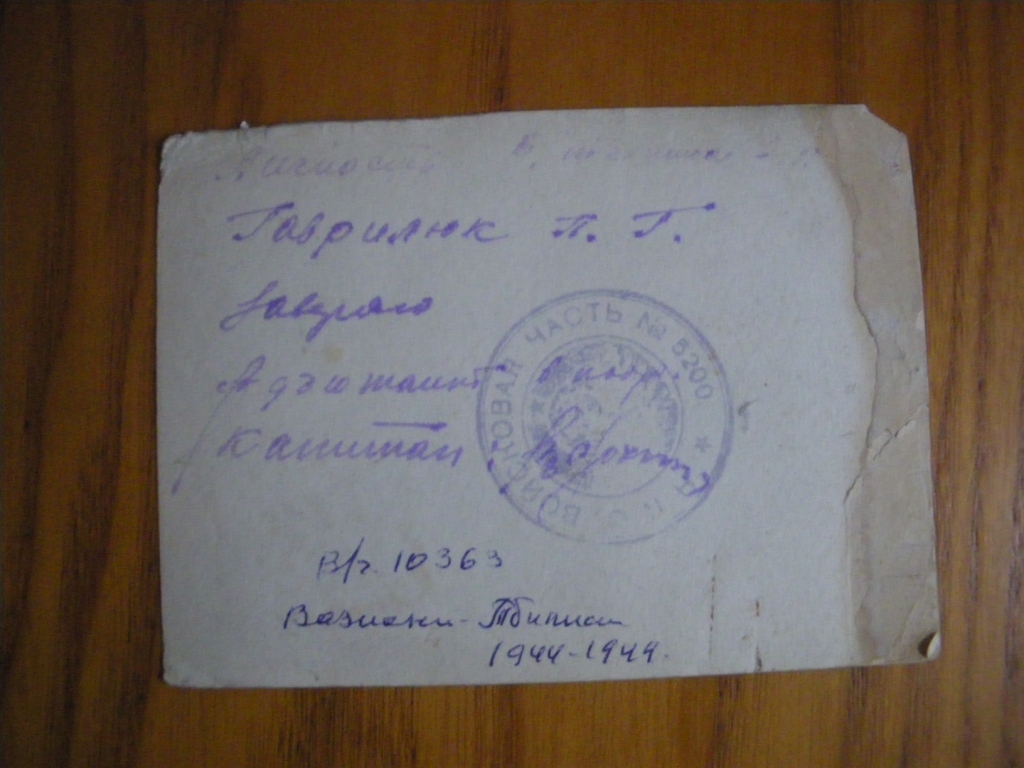 Личность
Гаврилюк П. Г.
Заверяю
Адъютант
Капитан
ВОЙСКОВАЯ ЧАСТЬ № 5200
В/ч. 10363
Вазиани-Тбилиси
1944-1949.